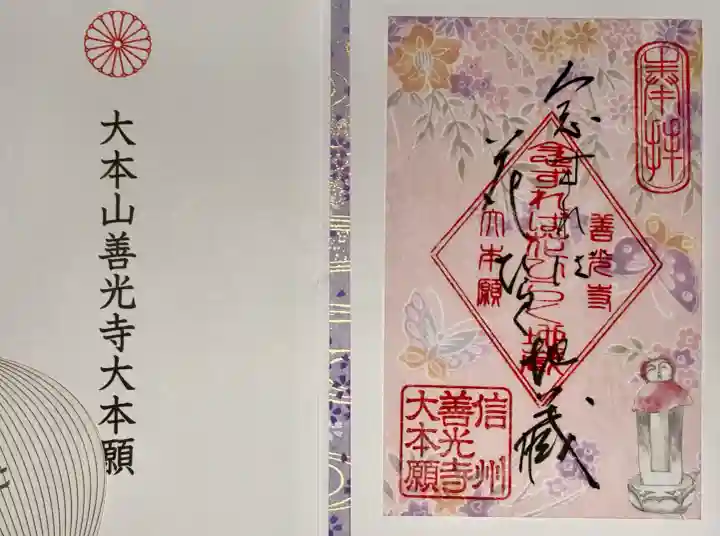 大本山善光寺大本願
奉拝
念ずれば
花ひらく地蔵
善光寺
大本願
信州
善光寺
大本願